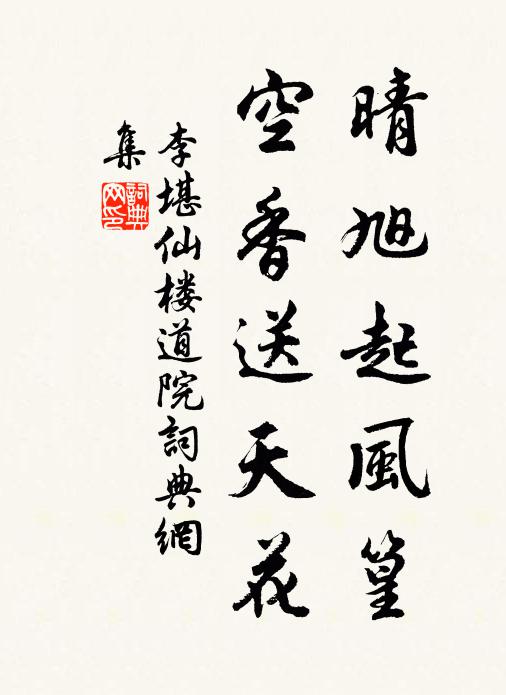 晴旭起風篁
空香送天花
李堪仙楼道院詞典網
集
詞典网印